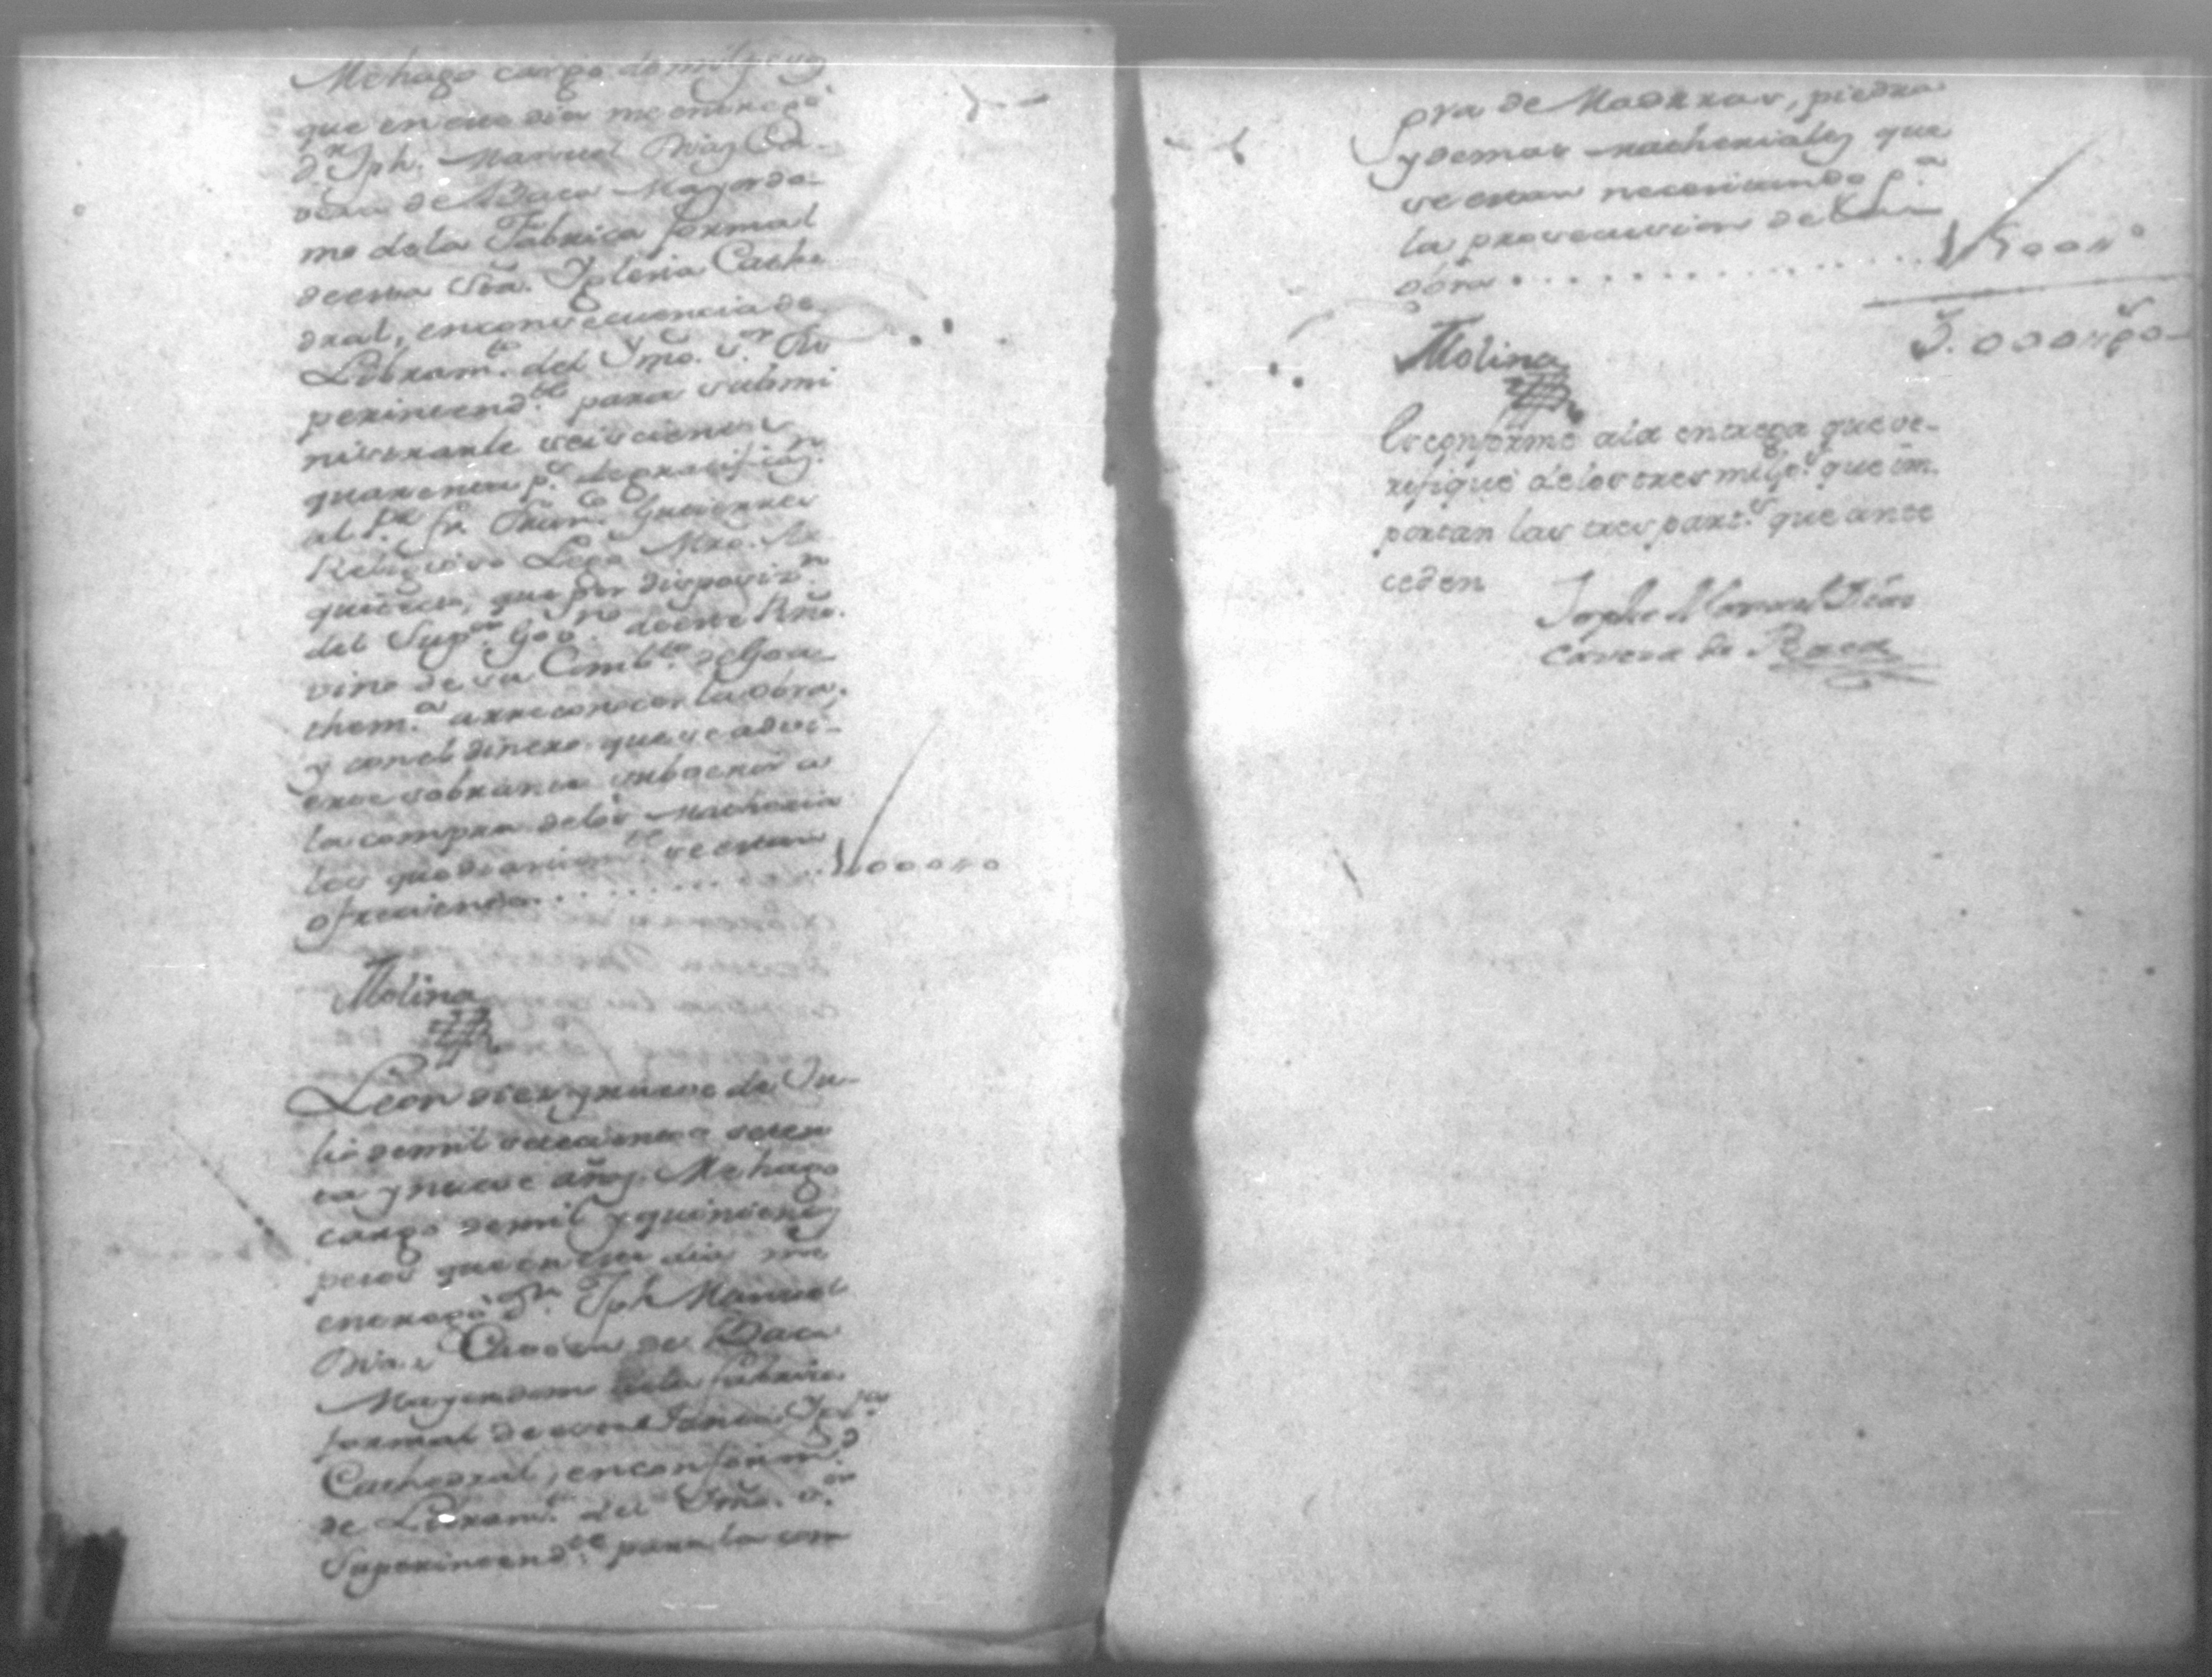 Me hago cargo de mil pesos
que en este dia me entregó
d.n Jph. Manuel Dias Ca-
vesa de Baca Mayordo-
mo de la Fabrica formal
de esta Sta. Yglesia Cathe
dral, en consecuencia de
Libram.to del Ymo. s.or Su
perintend.te para submi
nistrarle seiscientos
quarenta p.s de gratificaz.n
al P.e fr. Fran.co Gutierres
Religioso Lego Mro. Ar
quitecto, que por disposiz.n
del Sup.or Gov.no de este Rno.
vino de su Comb.to de Goa
them.a a rreconocer la obra,
y con el dinero que se advi-
erte sobrante
la compra de los Matheria
les que diariam.te se estan
ofreciendo . . . . . . . . . . 1000 " 0
Molina
Leon dies y nueve de Ju-
lio de mil setecientos seten
ta y nueve años. Me hago
cargo de mil y quinientos
pesos que en este dia me
entregó d.n Jph Manuel
Dias Cavesa de Baca
Mayordomo de la fabrica
formal de esta Santa Ygl.a
Cathedral, en conform.d
de Libram.to del Ymo. s.or
Superintend.te para la com
pra de Maderas, piedra
y demas matheriales que
se estan necesitando p.a
la prosecucion de esta
obra . . . . . . . . . . . . . 1500 " 0
3.000 " p.s 0
Molina
Es conforme a la entrega que ve-
rifiqué de los tres mil p.s que im
portan las tres part.s que ante
ceden
Josphe Manuel Dias
Cavesa de Baca